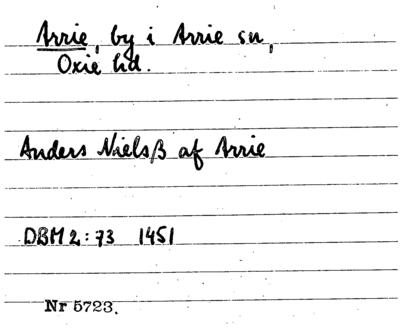 Arrie, by i Arrie sn,
Oxie hd.
Anders Nielsß af Arrie
DBM 2:73 1451
Nr 5723.